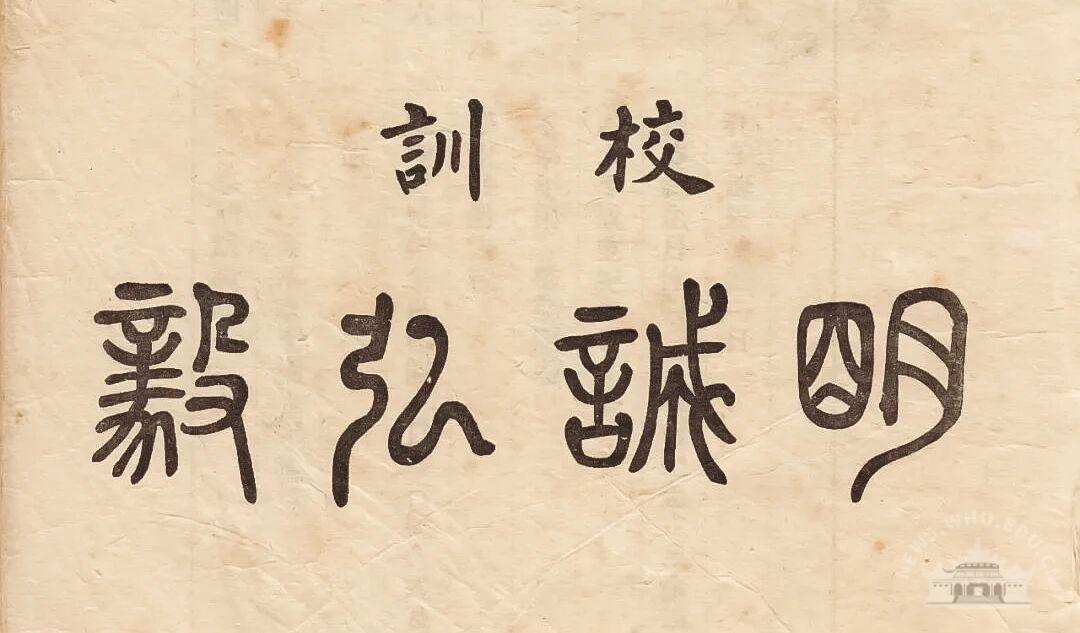 校訓
明誠弘毅
NEWS.WHU.EDU.CN